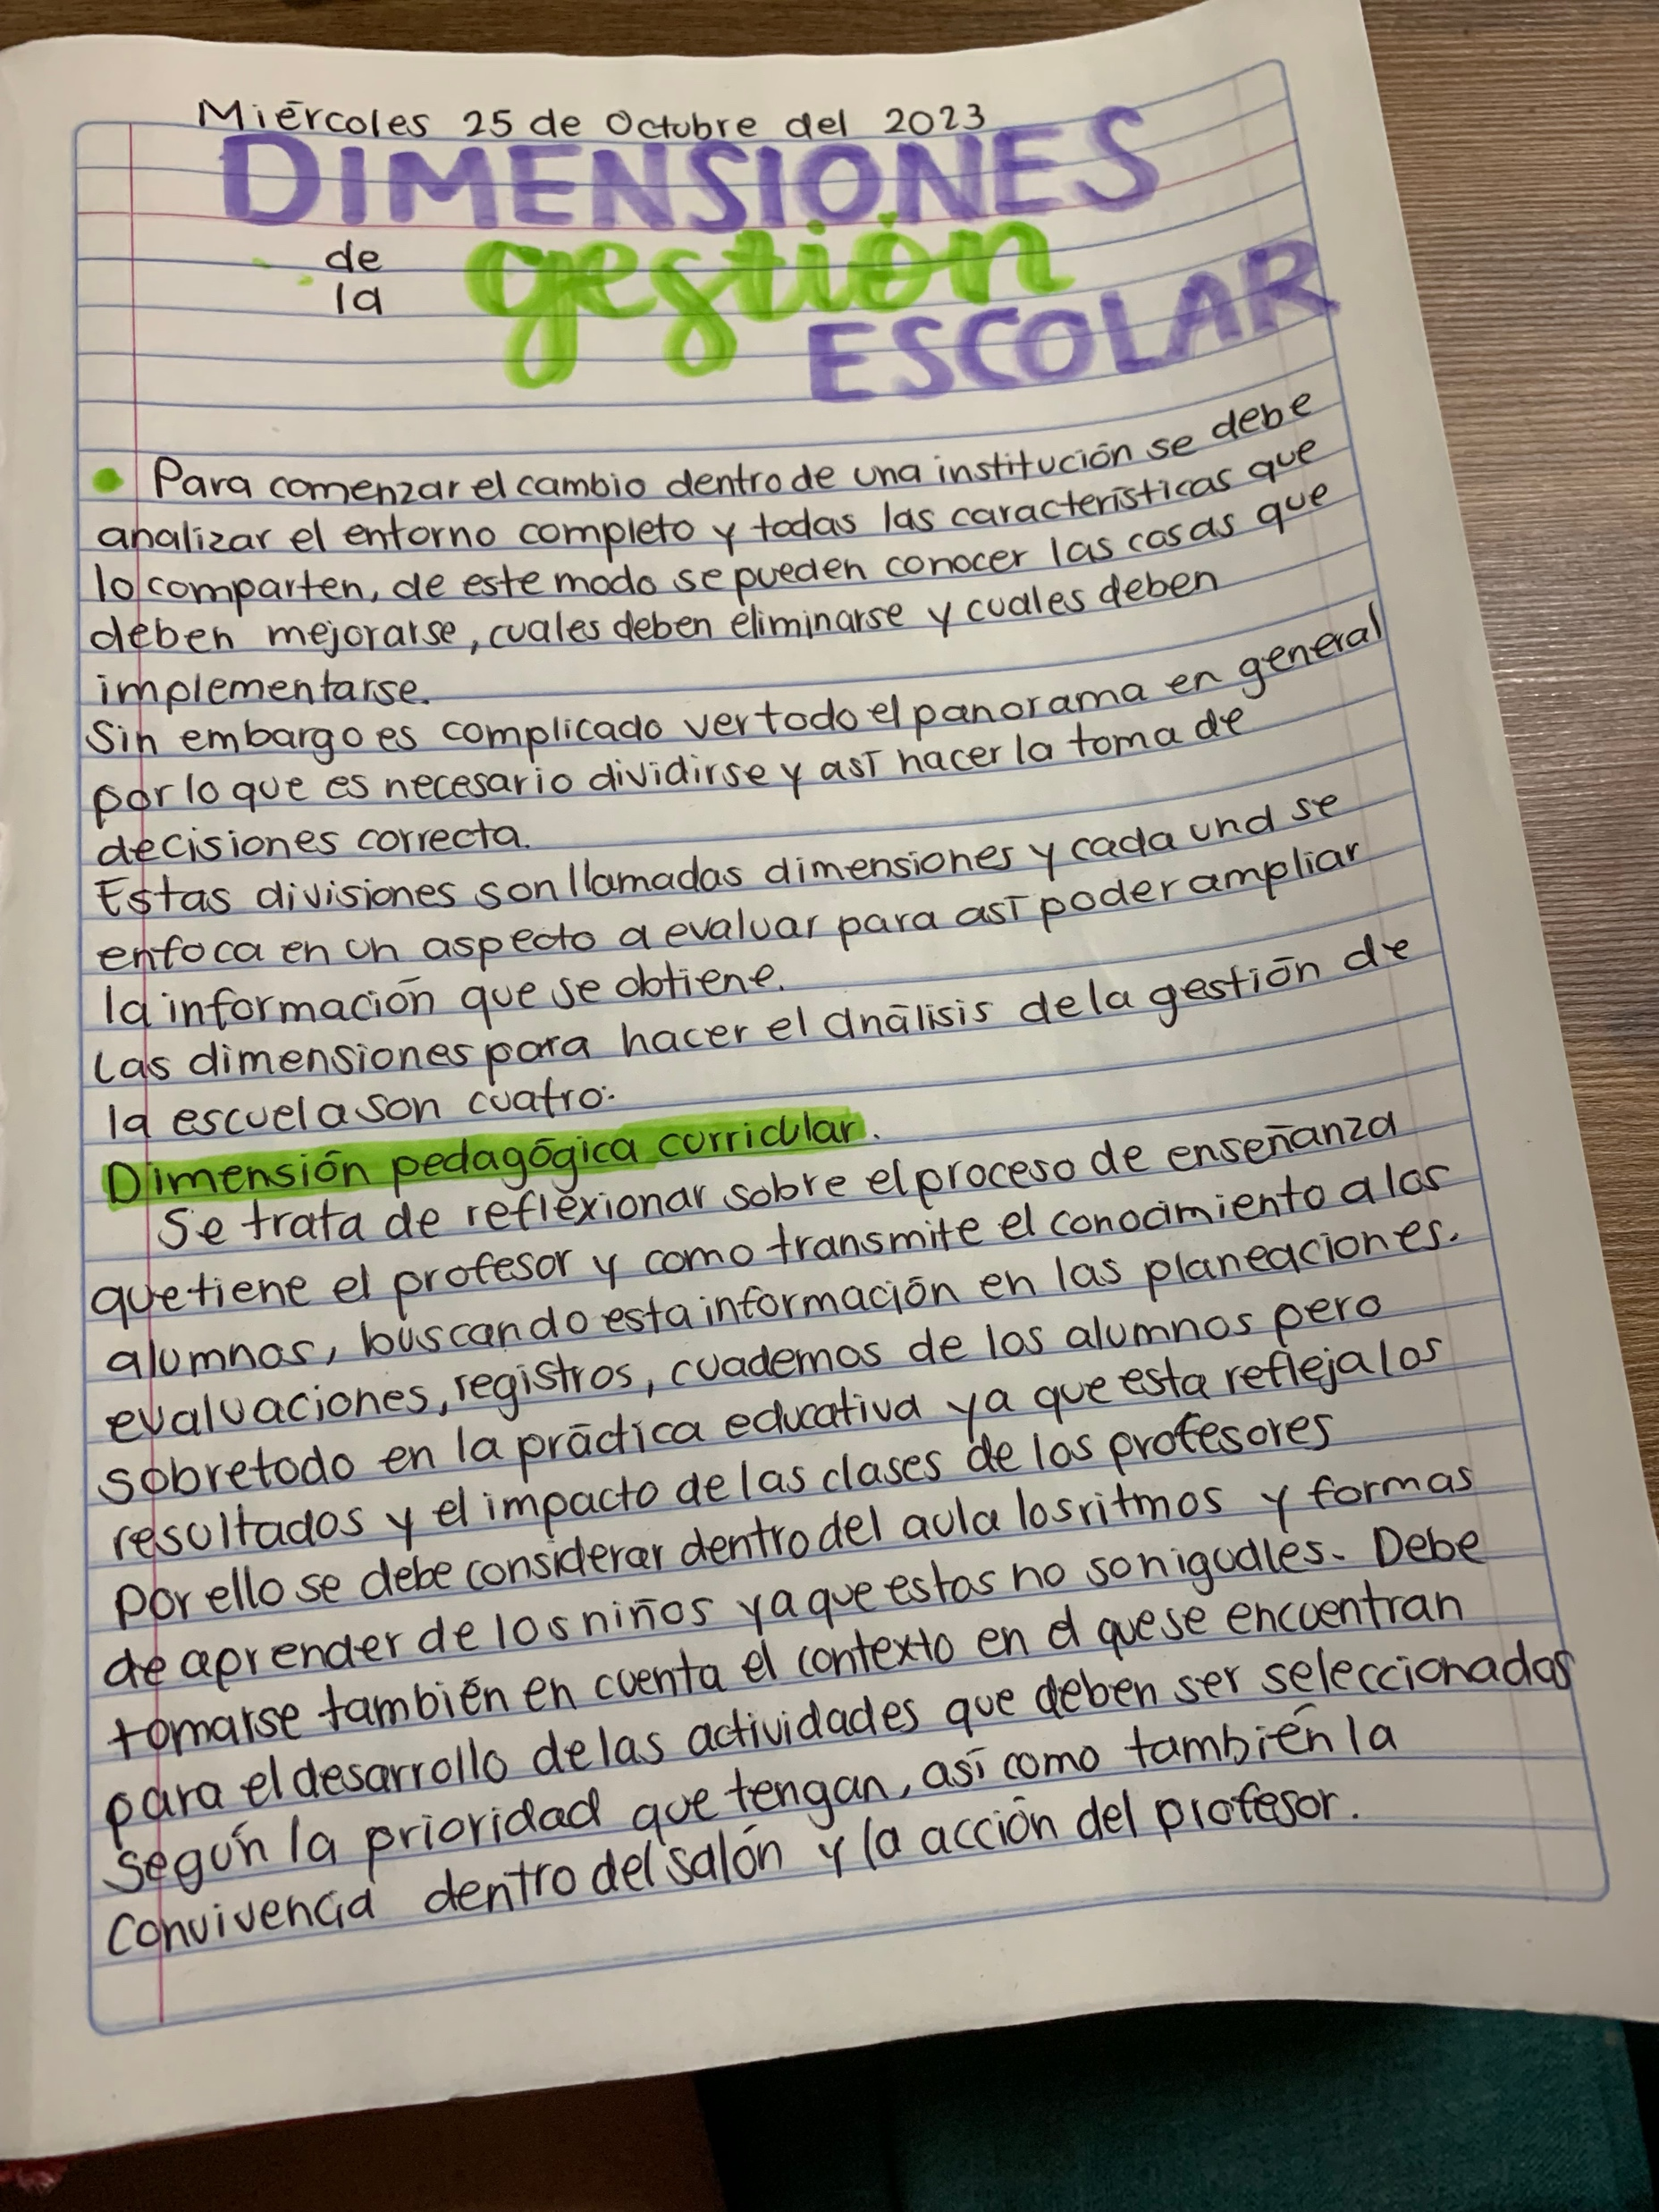 Miércoles 25 de Octubre del 2023
DIMENSIONES
de la gestión
ESCOLAR
Para comenzar el cambio dentro de una institución se debe
analizar el entorno completo y todas las características que
lo comparten, de este modo se pueden conocer las cosas que
deben mejorarse, cuales deben eliminarse y cuales deben
implementarse.
Sin embargo es complicado ver todo el panorama en general
por lo que es necesario dividirse y así hacer la toma de
decisiones correcta.
Estas divisiones son llamadas dimensiones y cada una se
enfoca en un aspecto a evaluar para así poder ampliar
la información que se obtiene.
Las dimensiones para hacer el análisis de la gestión de
la escuela son cuatro:
Dimensión pedagógica curricular.
Se trata de reflexionar sobre el proceso de enseñanza
que tiene el profesor y como transmite el conocimiento a los
alumnos, buscando esta información en las planeaciones.
evaluaciones, registros, cuadernos de los alumnos pero
sobretodo en la práctica educativa ya que esta refleja los
resultados y el impacto de las clases de los profesores
Por ello se debe considerar dentro del aula los ritmos y formas
de aprender de los niños ya que estos no son iguales. Debe
tomarse también en cuenta el contexto en el que se encuentran
para el desarrollo de las actividades que deben ser seleccionadas
según la prioridad que tengan, así como también la
convivencia dentro del salón y la acción del profesor.